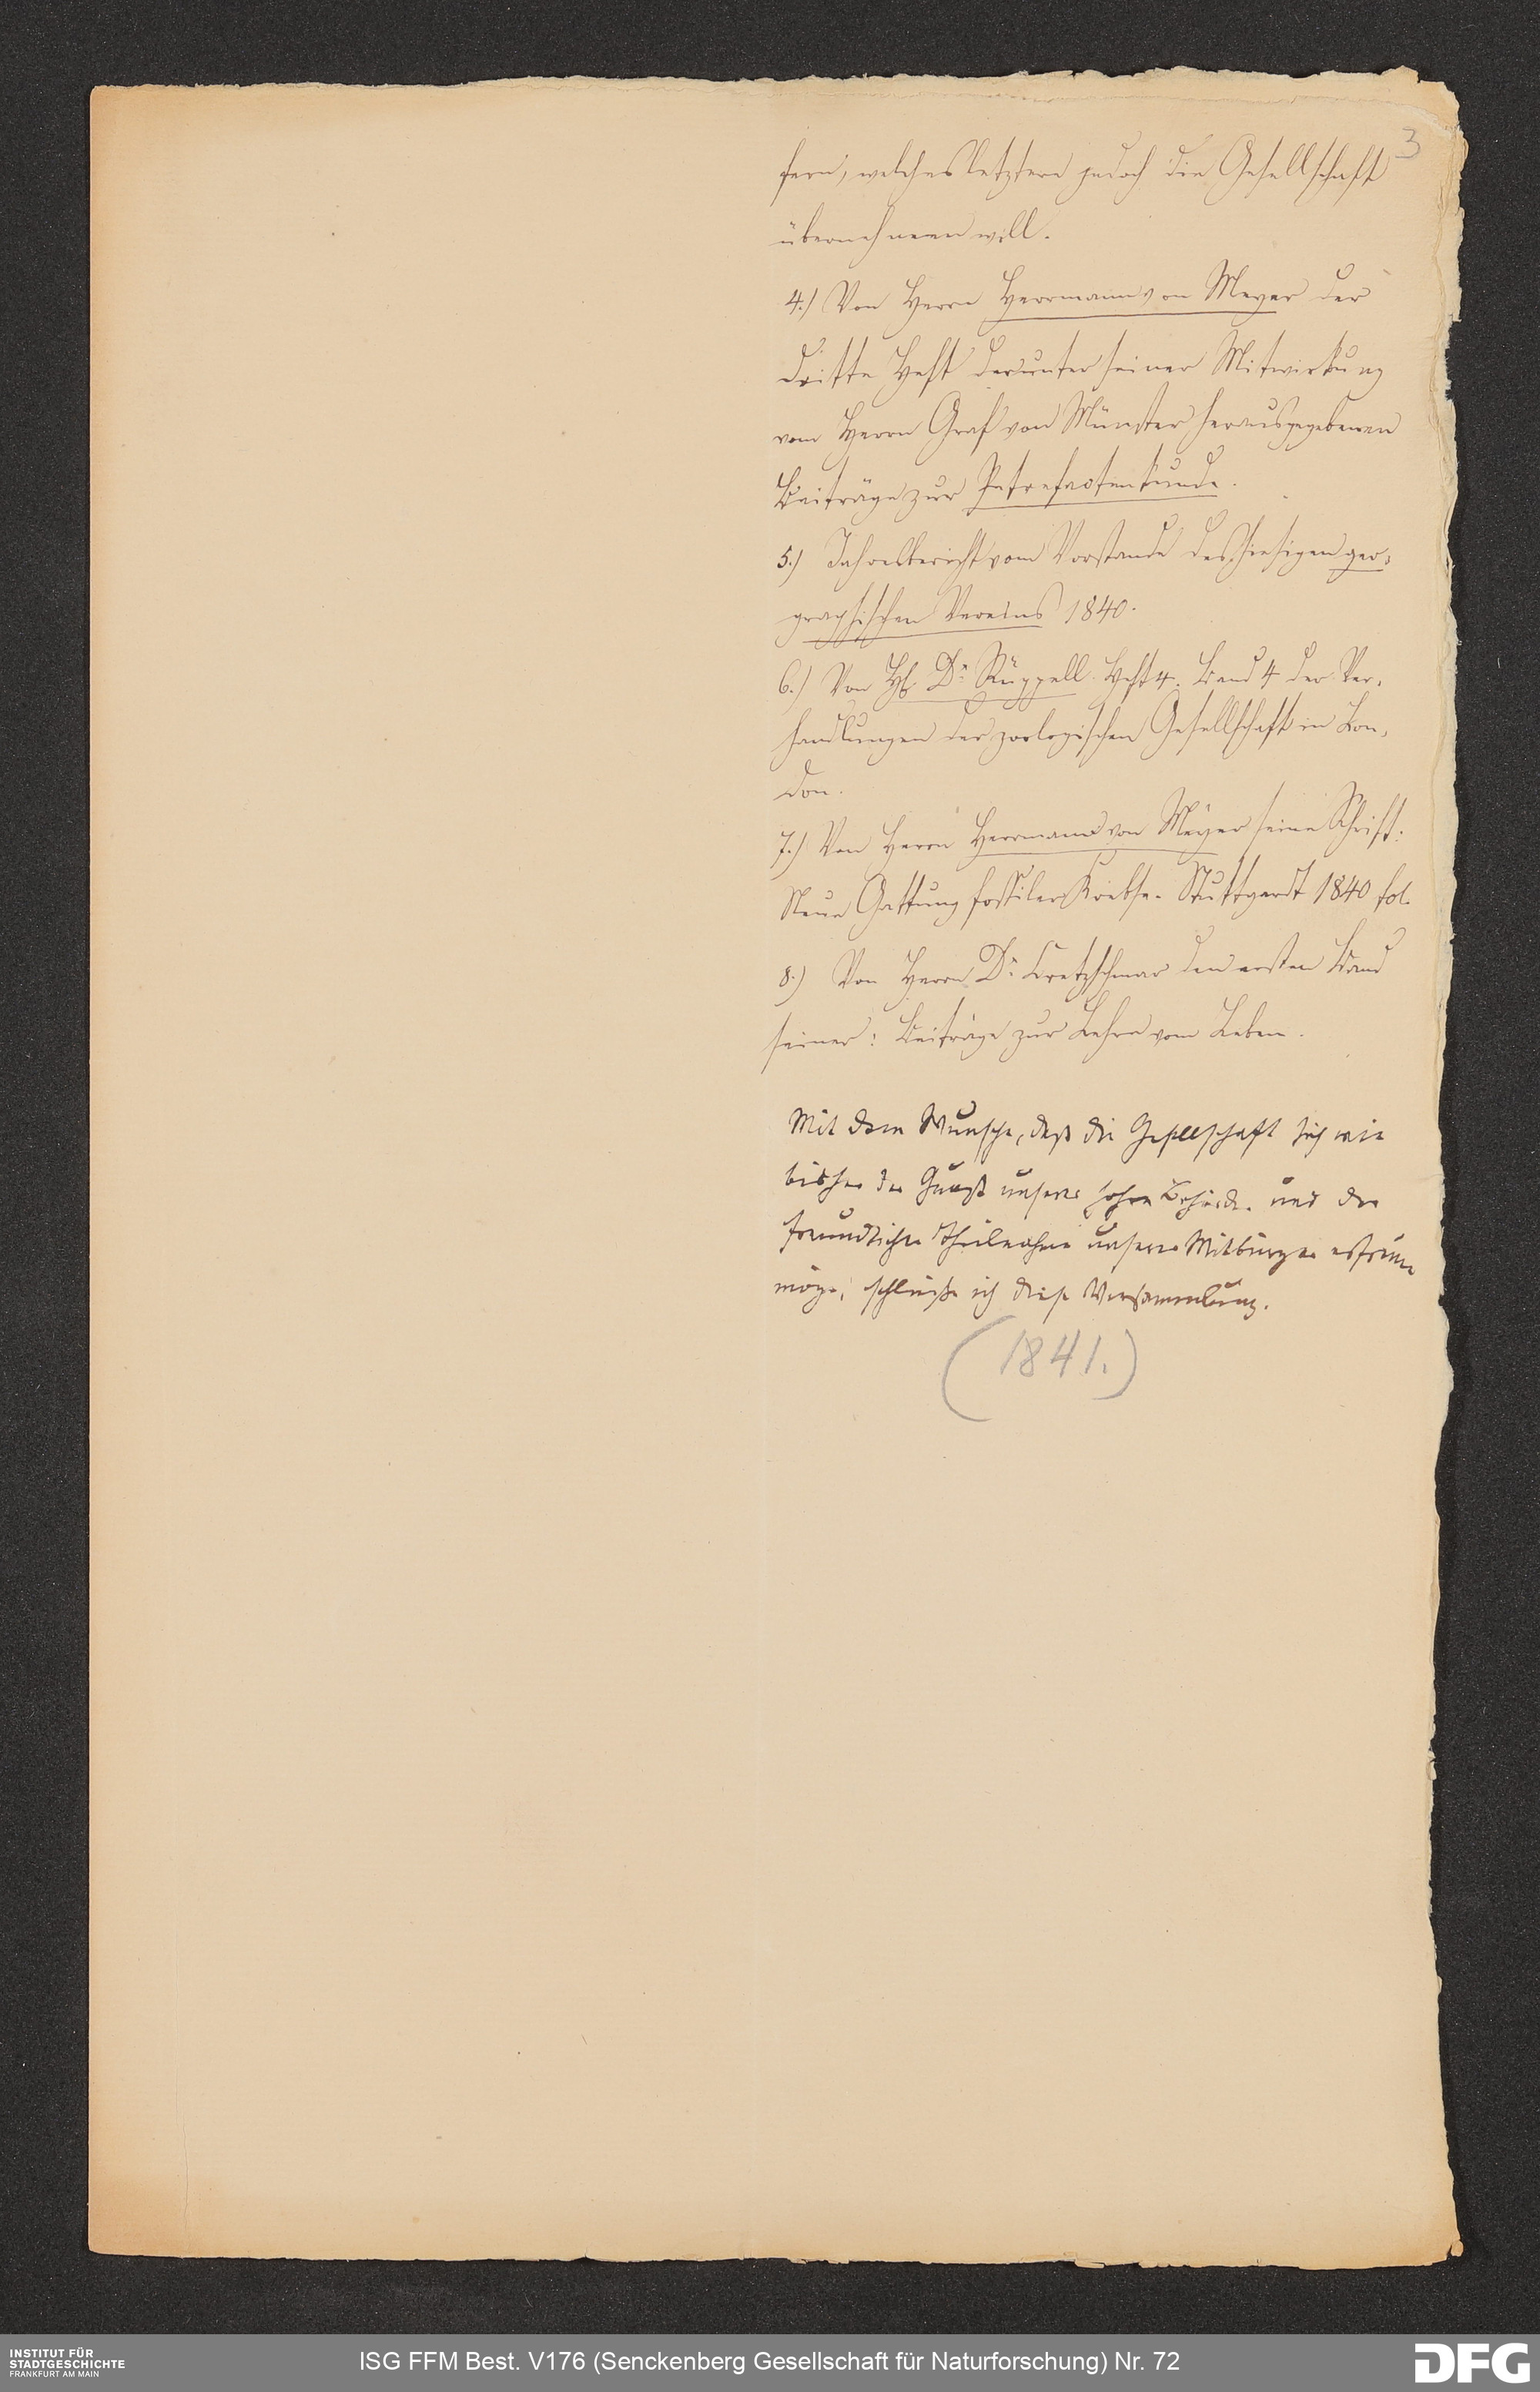 3
fern, welches letztere jedoch die Gesellschaft
übernehmen will.
4.) Von Herrn Herrmann von Meyer der
dritte Heft der unter seiner Mitwirkung
vom Herrn Graf von Münster herausgegebenen
Beiträge zur Petrefactenkunde.
5.) Jahresbericht vom Vorstande des hiesigen geo-
graphischen Vereins 1840.
6.) Von H. Dr. Rüppell Heft 4. Band 4 der Ver-
handlungen der zoologischen Gesellschaft in Lon-
don.
7.) Von Herrn Herrmann von Meyer seine Schrift:
Neue Gattung fossiler Krebse. Stuttgardt 1840 fol.
8.) Von Herrn Dr. Cretzschmar den ersten Band
seiner: Beiträge zur Lehre vom Leben.
Mit dem Wunsche, daß die Gesellschaft sich wie
bisher der Gunst unserer hohen Behörde und der
freundlichen Theilnahme unserer Mitbürger erfreuen
möge, schließe ich diese Versammlung.
(1841.)
INSTITUT FÜR
STADTGESCHICHTE
FRANKFURT AM MAIN
ISG FFM Best. V176 (Senckenberg Gesellschaft für Naturforschung) Nr. 72
DFG